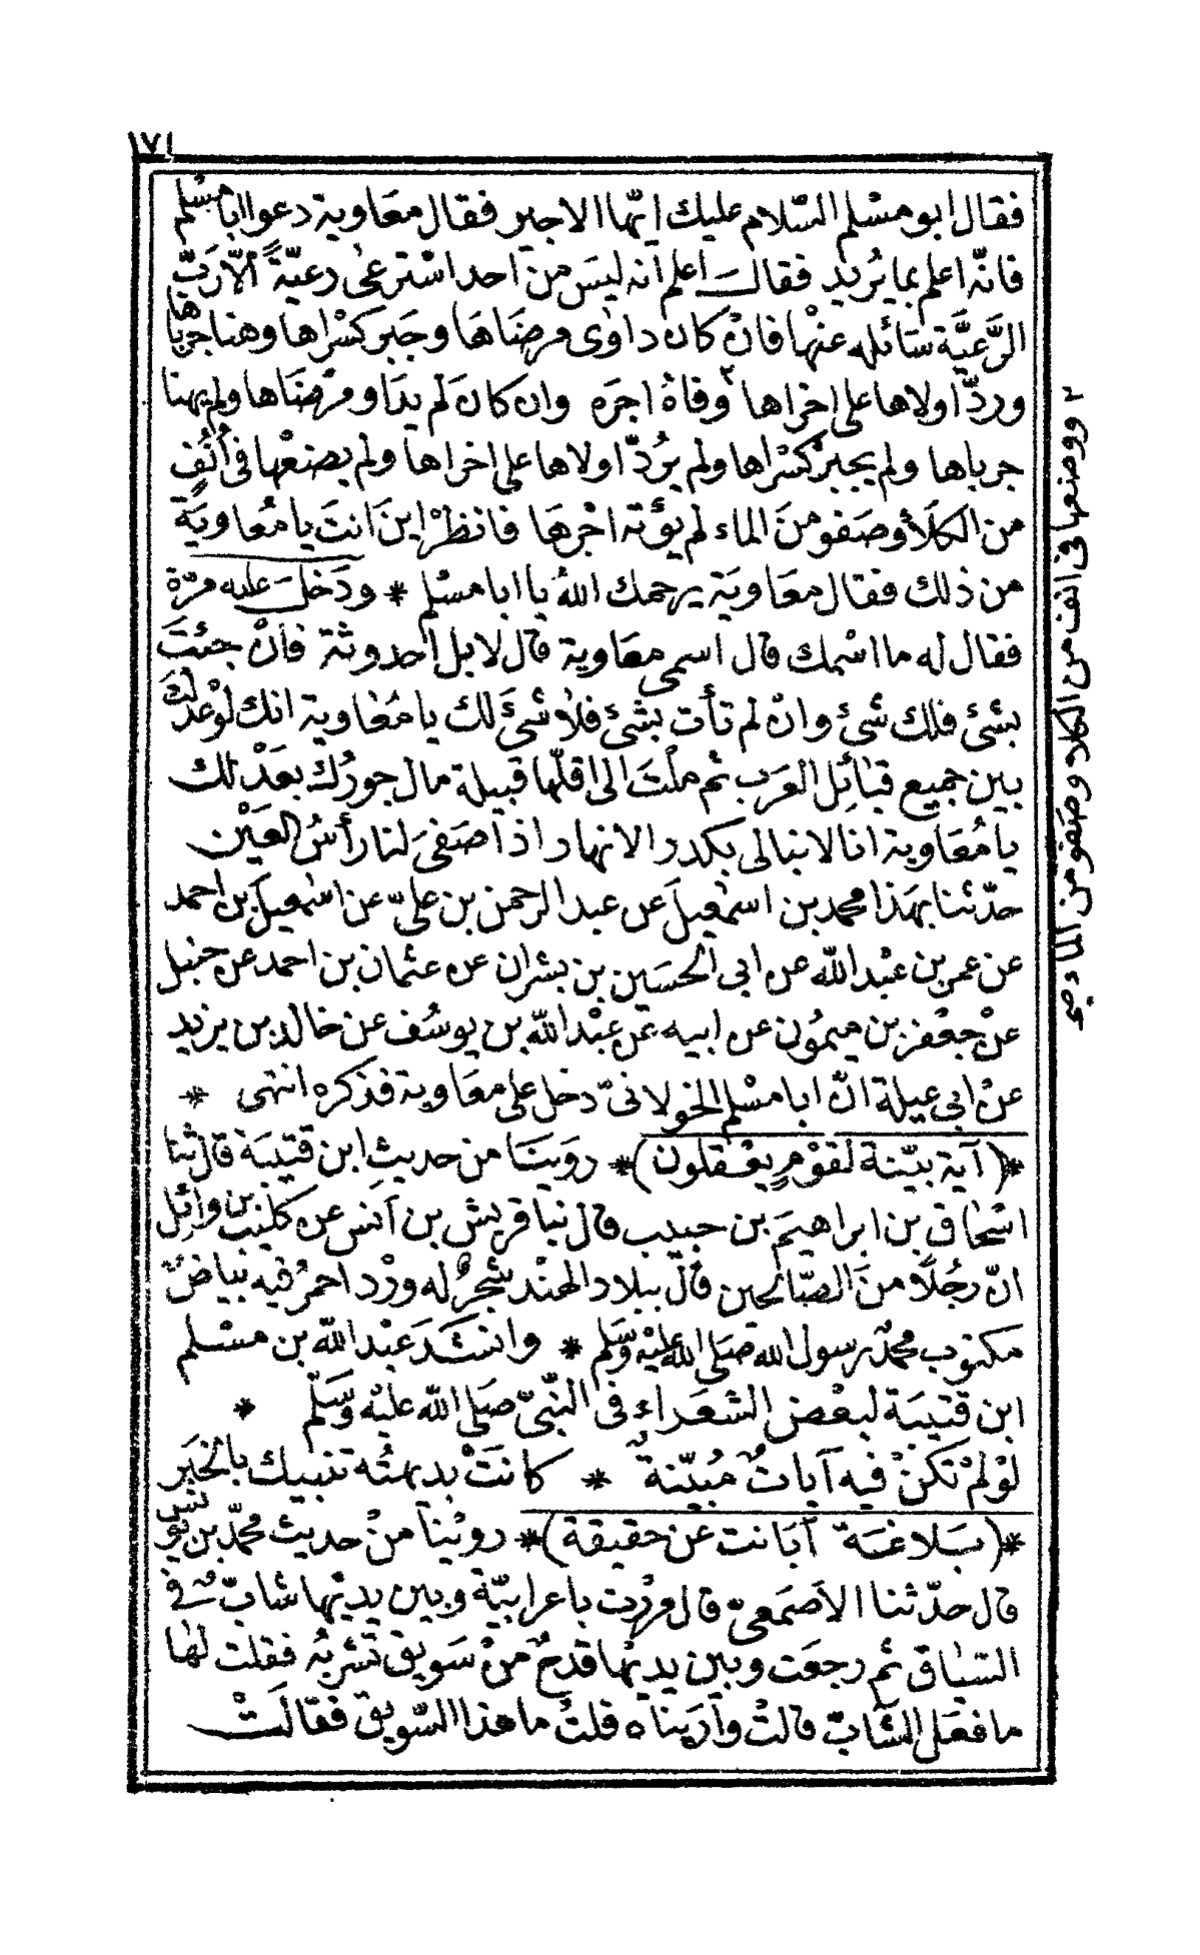 ١٧١
فقال ابو مسْلم السّلام عليك ايّها الاجير فقال معَاوية دعوا ابا مسْلم
فانّه اعلم بما يُريد فقالَ اعلم انه ليسَ من احد استرعى رعيّةً الّا ربّ
الرّعيَّة سَائله عنْها فانْ كان داوى مرضَاهَا وجَبر كسْراها وهنا جرباها
وردّ اولاها على اخراها ٢ وفاهُ اجرَه وان كان لم يدَاو مرْضَاها ولم يهنا
جرباها ولم يجبرْ كسْراها ولم يرُدّ اولاها على اخراها ولم يضعْها فى اُنُفٍ
من الكلَأ وصَفو منَ الماء لم يؤته اجْرهَا فانظرْ اينَ انتَ يا مُعاويَة
من ذلك فقال معَاويَة يرحمك اللهُ يا ابا مسْلم * ودَخلَ عليه مرّة
فقال له ما اسْمك قال اسمى معَاوية قال لا بل احدوثة فانْ جئتَ
بشئ فلك شئ وانْ لم تأت بشئ فلا شئَ لك يا مُعَاوية انك لوْ عدلتَ
بين جميع قبَائِل العَرب ثم ملْتَ الى اقلّها قبيلة مال جورُك بعَدْلك
يا مُعَاوية انا لا نبالى بكدر الانهار اذا صَفى لنا رأسُ العَيْن
حدّثنا بهَذا محمد بن اسمعيلَ عن عبد الرحمن بن علىّ عن اسْمعيلَ بن احمد
عن عمر بن عبْد اللّه عن ابى الحسَين بن بشران عن عثمان بن احمد عن حنبل
عنْ جعْفر بن ميمُون عن ابيه عن عبْد اللّه بن يوسُف عن خالد بن يزيد
عنْ ابى عبلة انّ ابا مسْلم الخولانىّ دخل على معَاوية فذكره انتهى *
*( آية بيّنة لقوْمٍ يعْقلون )* رويَنا من حديثِ ابن قتيبَة قال ثنا
اسْحَاق بن ابراهيمَ بن حبيب قال نبا قريش بن اَنس عن كليب بن وائِل
انّ رجُلًا منَ الصّالحين قال ببلاد الهنْد شجرٌ له ورْد احمرُ فيه ببياضٌ
مكتوب محمّدٌ رسول الله صَلى الله عليْه وَسَلم * وانشدَ عبْد اللّه بن مسْلم
ابن قتيبَة لبعْض الشعَراء فى النّبىّ صَلى اللّه عليْه وَسَلّم *
لوْ لمْ تكنْ فيه آياتٌ مُبيّنةٌ * كانتْ بديهتُه تنبيك بالخبَر
*( بَلاغَة اَبانت عن حقيقة )* رويْنا منْ حديث محمّد بن يونس
قال حدّثنا الاَصمَعىّ قال مررْت باعرابيّة وبين يديْها شابّ فى
السّياق ثم رجعَت وبين يديْها قدحٌ منْ سَويق تشربُه فقلت لهَا
ما فعَل الشَابّ قالتْ واريناه قلتُ ما هذا السّويق فقالَتْ
٢ ووضعها فى انف من الكلا وصَفو من الماء صح